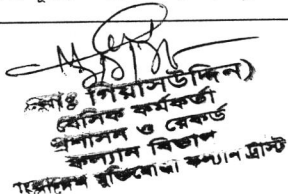 (মোঃ গিয়াসউদ্দিন)
বেসিক কর্মকর্তা
প্রশাসন ও রেকর্ড
কল্যাণ বিভাগ
বাংলাদেশ মুক্তিযোদ্ধা কল্যাণ ট্রাস্ট